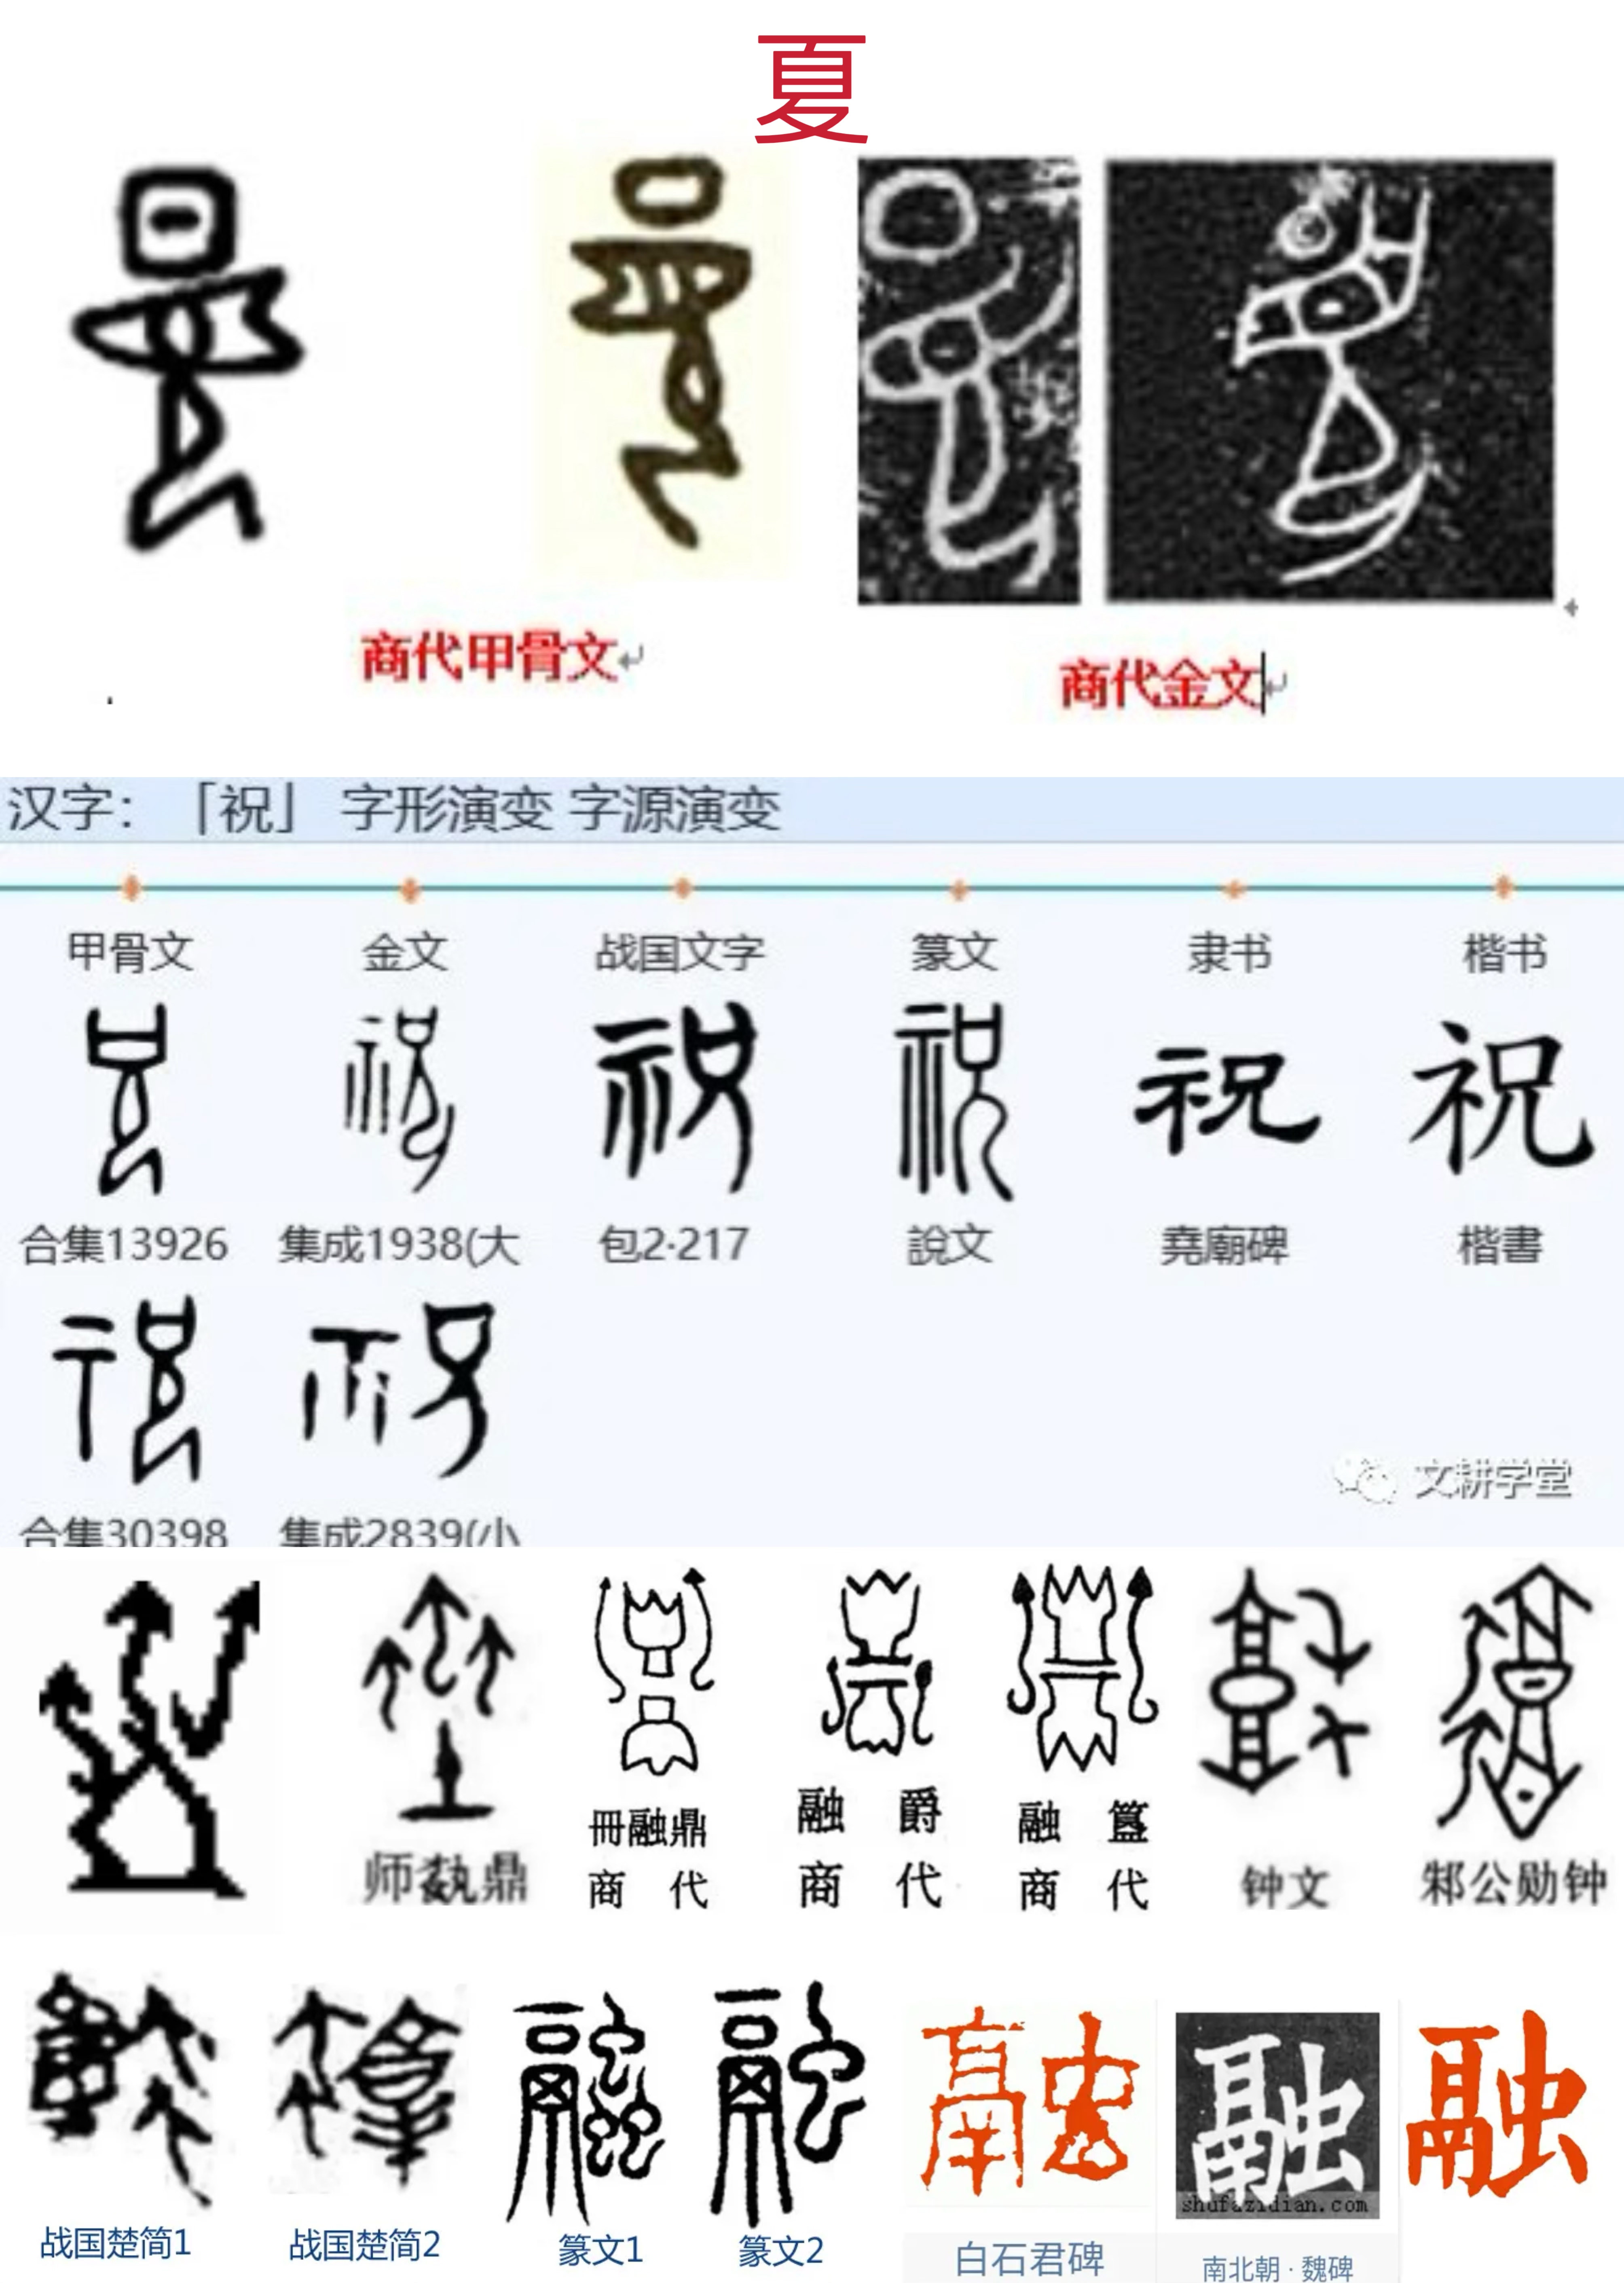 夏
商代甲骨文
商代金文
汉字：「祝」 字形演变 字源演变
甲骨文 金文 战国文字 篆文 隶书 楷书
祝 祝
合集13926 集成1938(大 包2·217 說文 堯廟碑 楷書
合集30398 集成2839(小
文耕学堂
师𩛥鼎 冊融鼎 融爵 融簋 钟文 邾公勋钟
商代 商代 商代
融 融
shufazidian.com
战国楚简1 战国楚简2 篆文1 篆文2 白石君碑 南北朝·魏碑